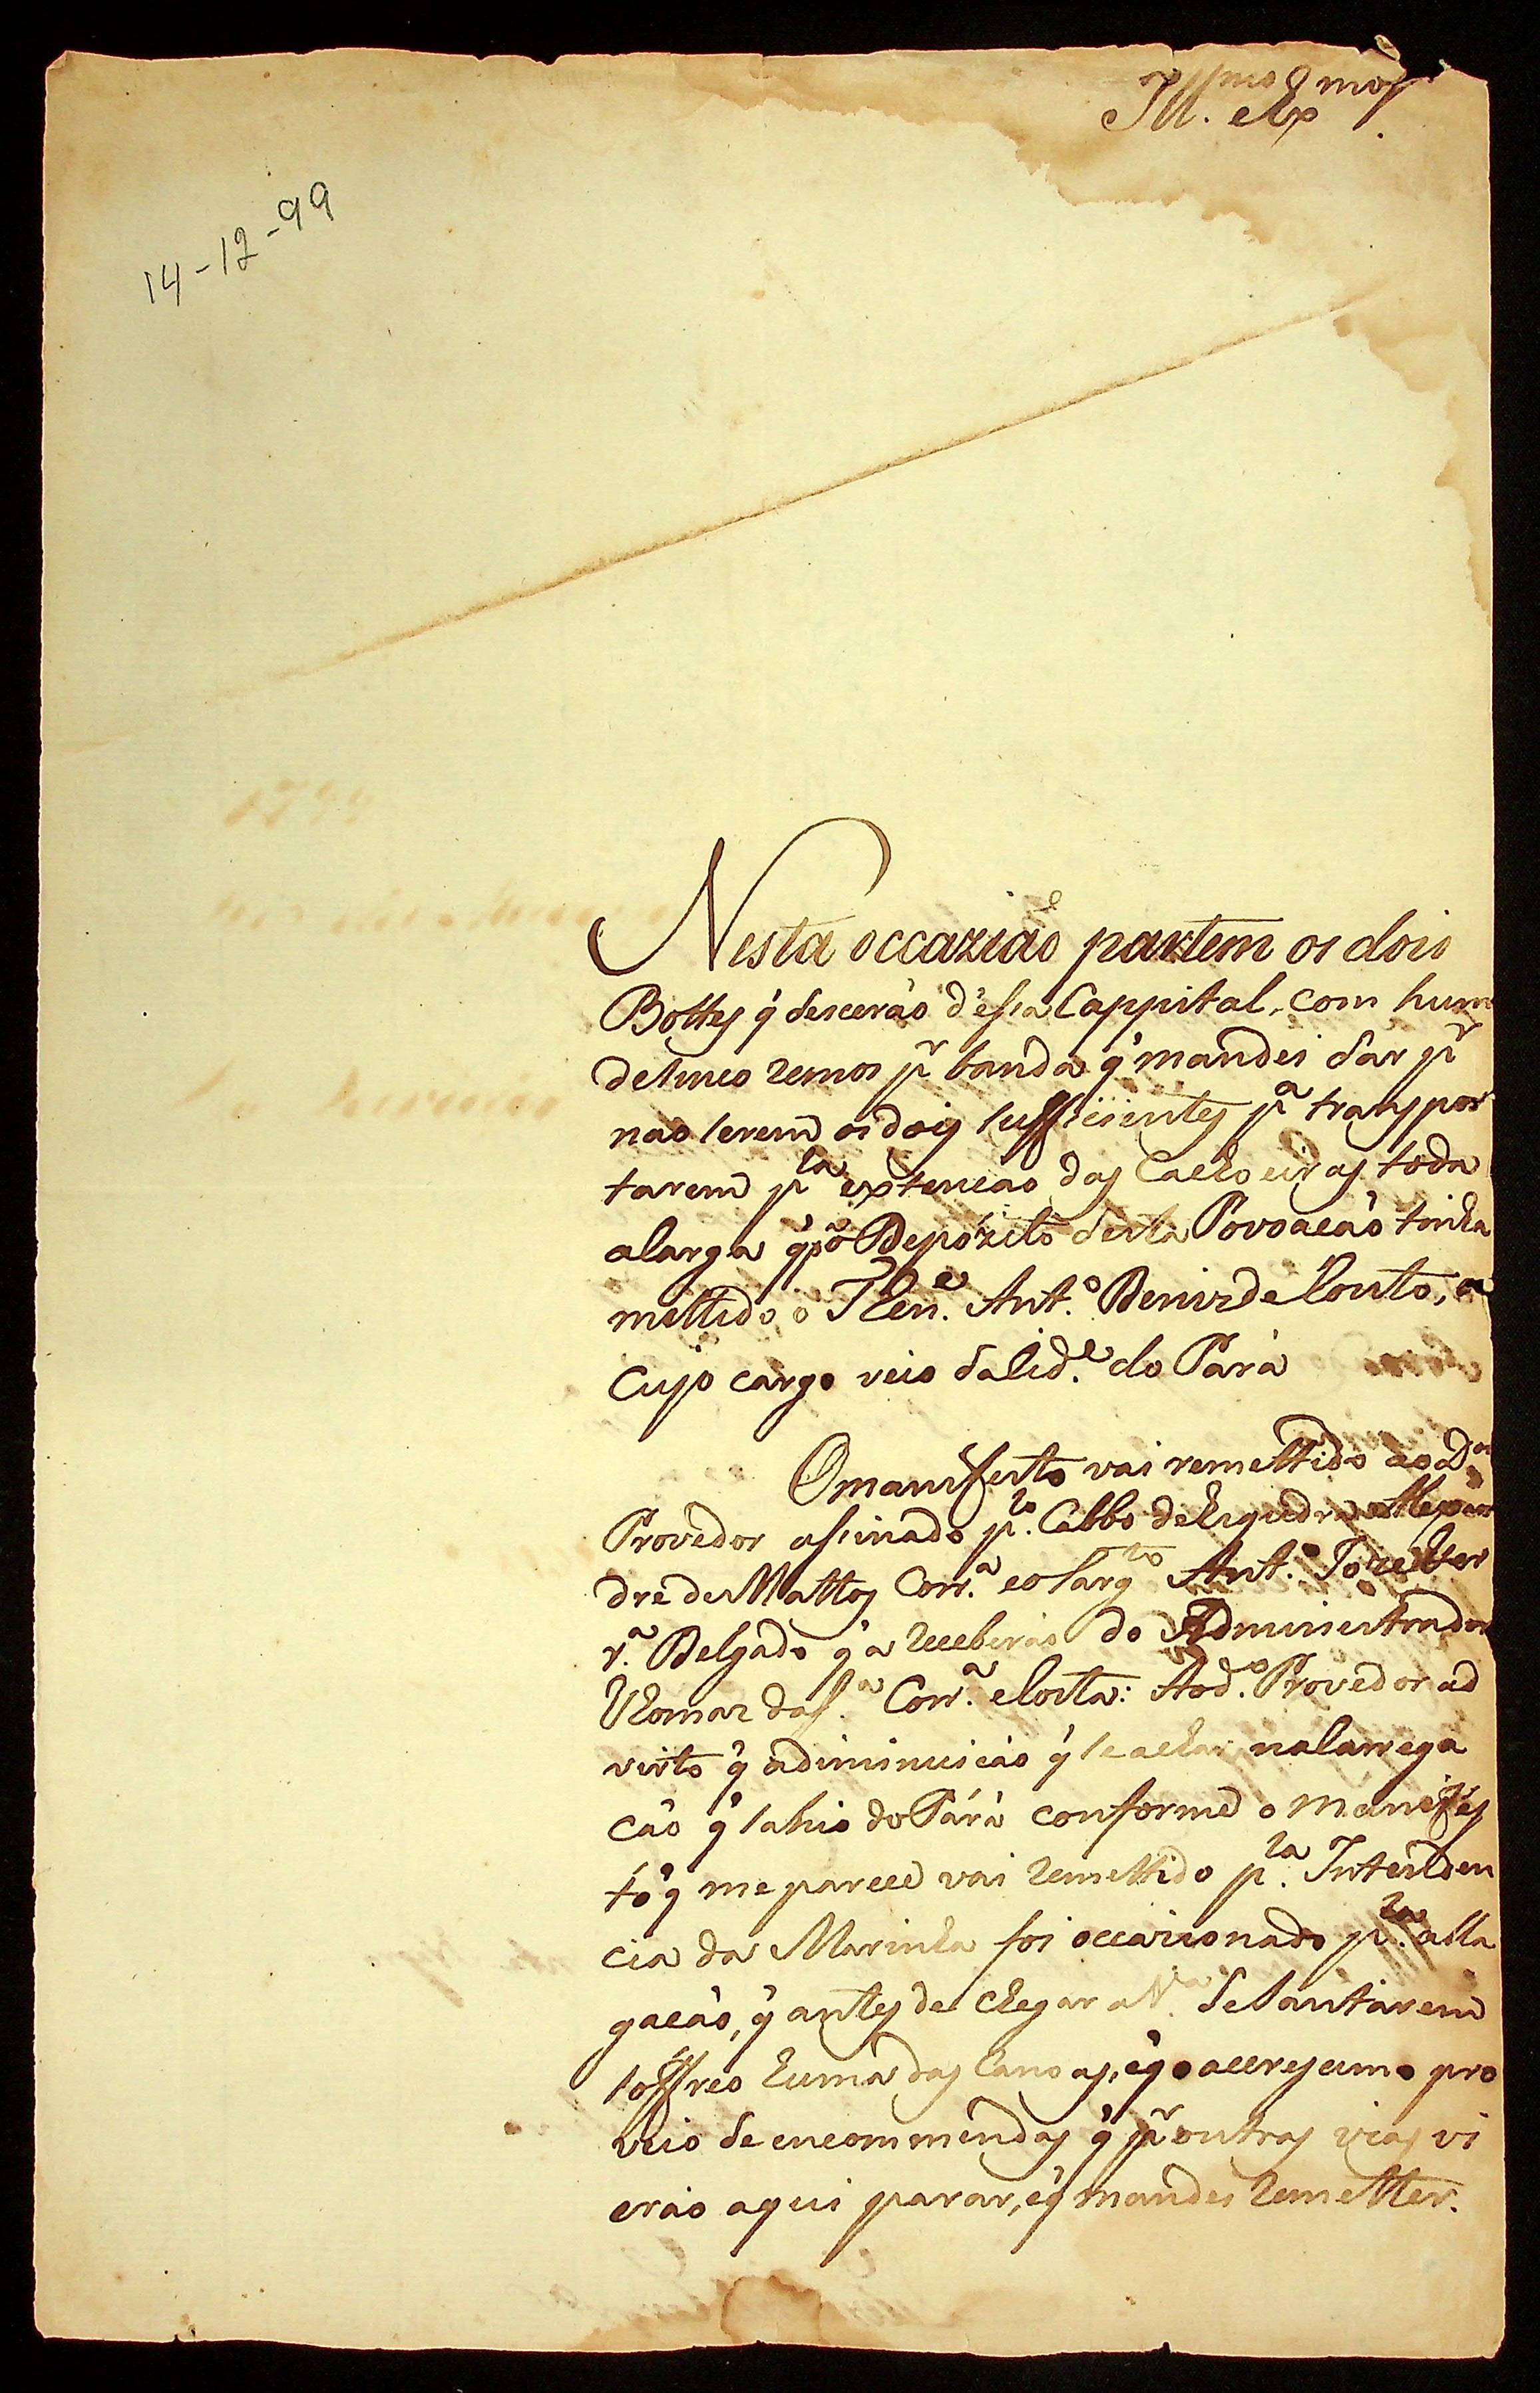 Ill.mo e Ex.mo S.r
14-12-99
Nesta occazião partem os dois
Bottes q̃ descerão d'essa Cappital, com hum
de sinco remos p.r banda q̃ mandei dar p.r
não serem os dois sufficientes p.a transpor
tarem p.la extenção das Cachoeiras toda
a carga q̃ p.a o Depózito desta Povoação tinha
mettido o Then.e Ant.o Deniz de Couto, a
cujo cargo veio da Cid.e do Pará
O manifesto vai remettido ao D.or
Provedor assinado p.lo Cabbo de Esquedra Alexan
dre de Mattos Corr.a e o Sarg.to Ant.o Joze Fer
r.a Delgado q̃ a receberão do Administrador
Thomaz da S.a Corr.a e Costa: Ao d.o Provedor ad
virto q̃ a diminuicão q̃ se achar na Carrega
cão q̃ sahio do Pará conforme o manifes
to q̃ me parece vai remettido p.la Intenden
cia da Marinha foi occazionado p.la alla
gacão, q̃ antes de chegar a V.a de Santarem
soffreo huma das Canoas, e q̃ o accrescimo pro
veio de encommendas q̃ p.r outras vias vi
erão aqui parar, e q̃ mandei remetter.